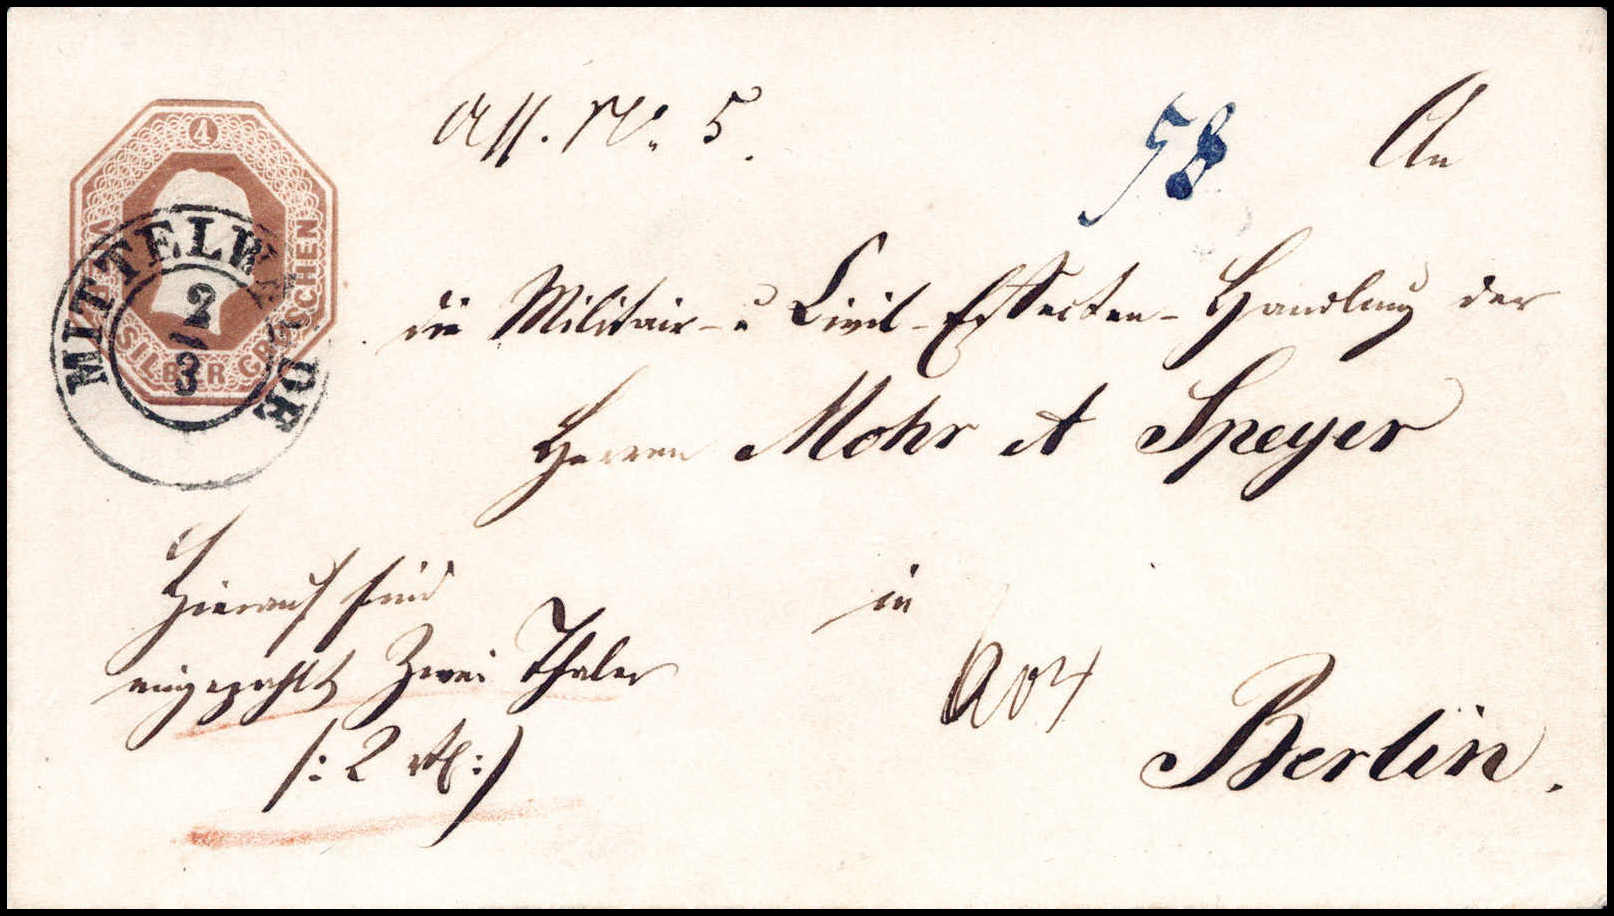 4
SILBER GROSCHEN
MITTELWALDE
2
3
Aff. No. 5.
58
An
die Militair- u Civil-Effecten-Handlung der
Herren Mohr et Speyer
in
Berlin.
Hierauf sind
eingezahlt Zwei Thaler
/: 2 rtl :/